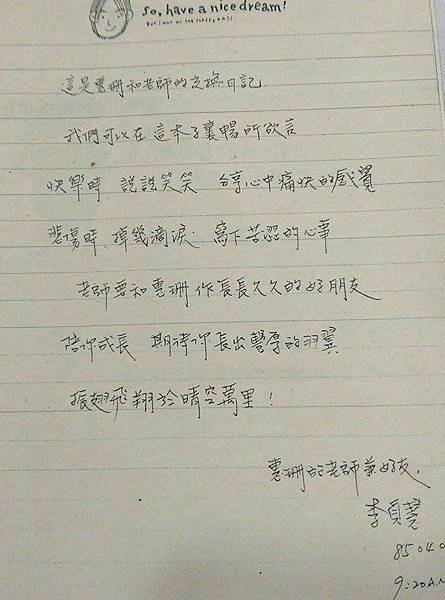 So, have a nice dream!
這是惠珊和老師的交換日記
我們可以在這本子裏暢所欲言
快樂時 說說笑笑 分享心中痛快的感覺
悲傷時 掉幾滴淚 寫下苦澀的心事
老師要和惠珊作長長久久的好朋友
陪你成長 期待你長出豐厚的羽翼
振翅飛翔於晴空萬里!
惠珊的老師兼好友,
李貞慧
85040
9:20A.M